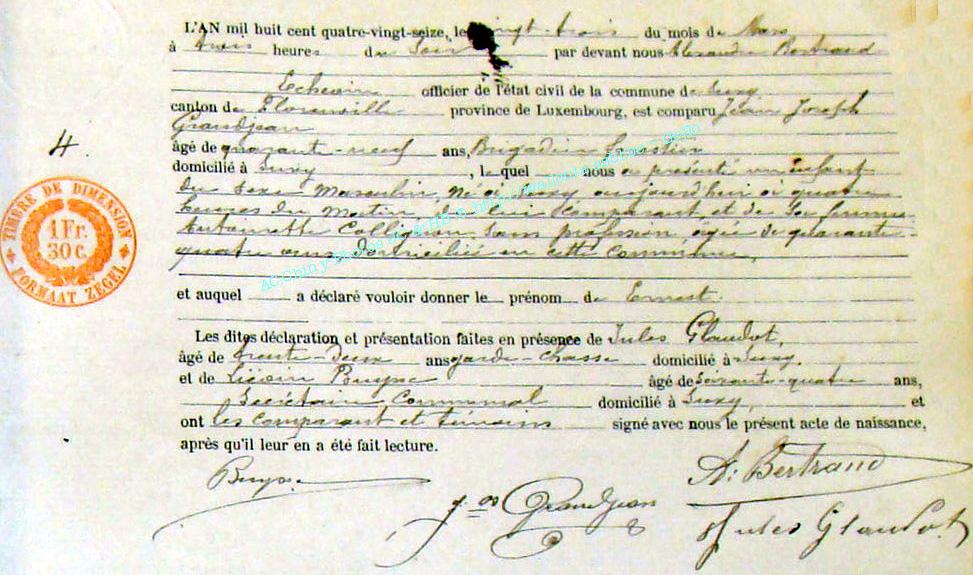 L'AN mil huit cent quatre-vingt-seize, le vingt-trois du mois de Mars
à trois heures du Soir par devant nous Alexandre Bertrand
Echevin officier de l'état civil de la commune de Suxy
canton de Florenville province de Luxembourg, est comparu Jean Joseph
Grandjean
âgé de quarante-neuf ans, Brigadier forestier
domicilié à Suxy, lequel nous a présenté un enfant
du sexe Masculin, né à Suxy aujourd'hui à quatre
heures du matin, de lui comparant et de son femme
Antoinette Collignon, sans profession âgée de quarante-
quatre ans, domiciliée en cette commune,
et auquel a déclaré vouloir donner le prénom de Ernest.
Les dites déclaration et présentation faites en présence de Jules Glaudot,
âgé de trente-deux ans garde-chasse domicilié à Suxy.
et de Liévin Buysse âgé de soixante-quatre ans,
Secrétaire Communal domicilié à Suxy, et
ont les comparant et témoins signé avec nous le présent acte de naissance,
après qu'il leur en a été fait lecture.
4.
TIMBRE DE DIMENSION
1 Fr.
30 C.
FORMAAT ZEGEL
Buysse
A. Bertrand
J. Jos Grandjean
Jules Glaudot